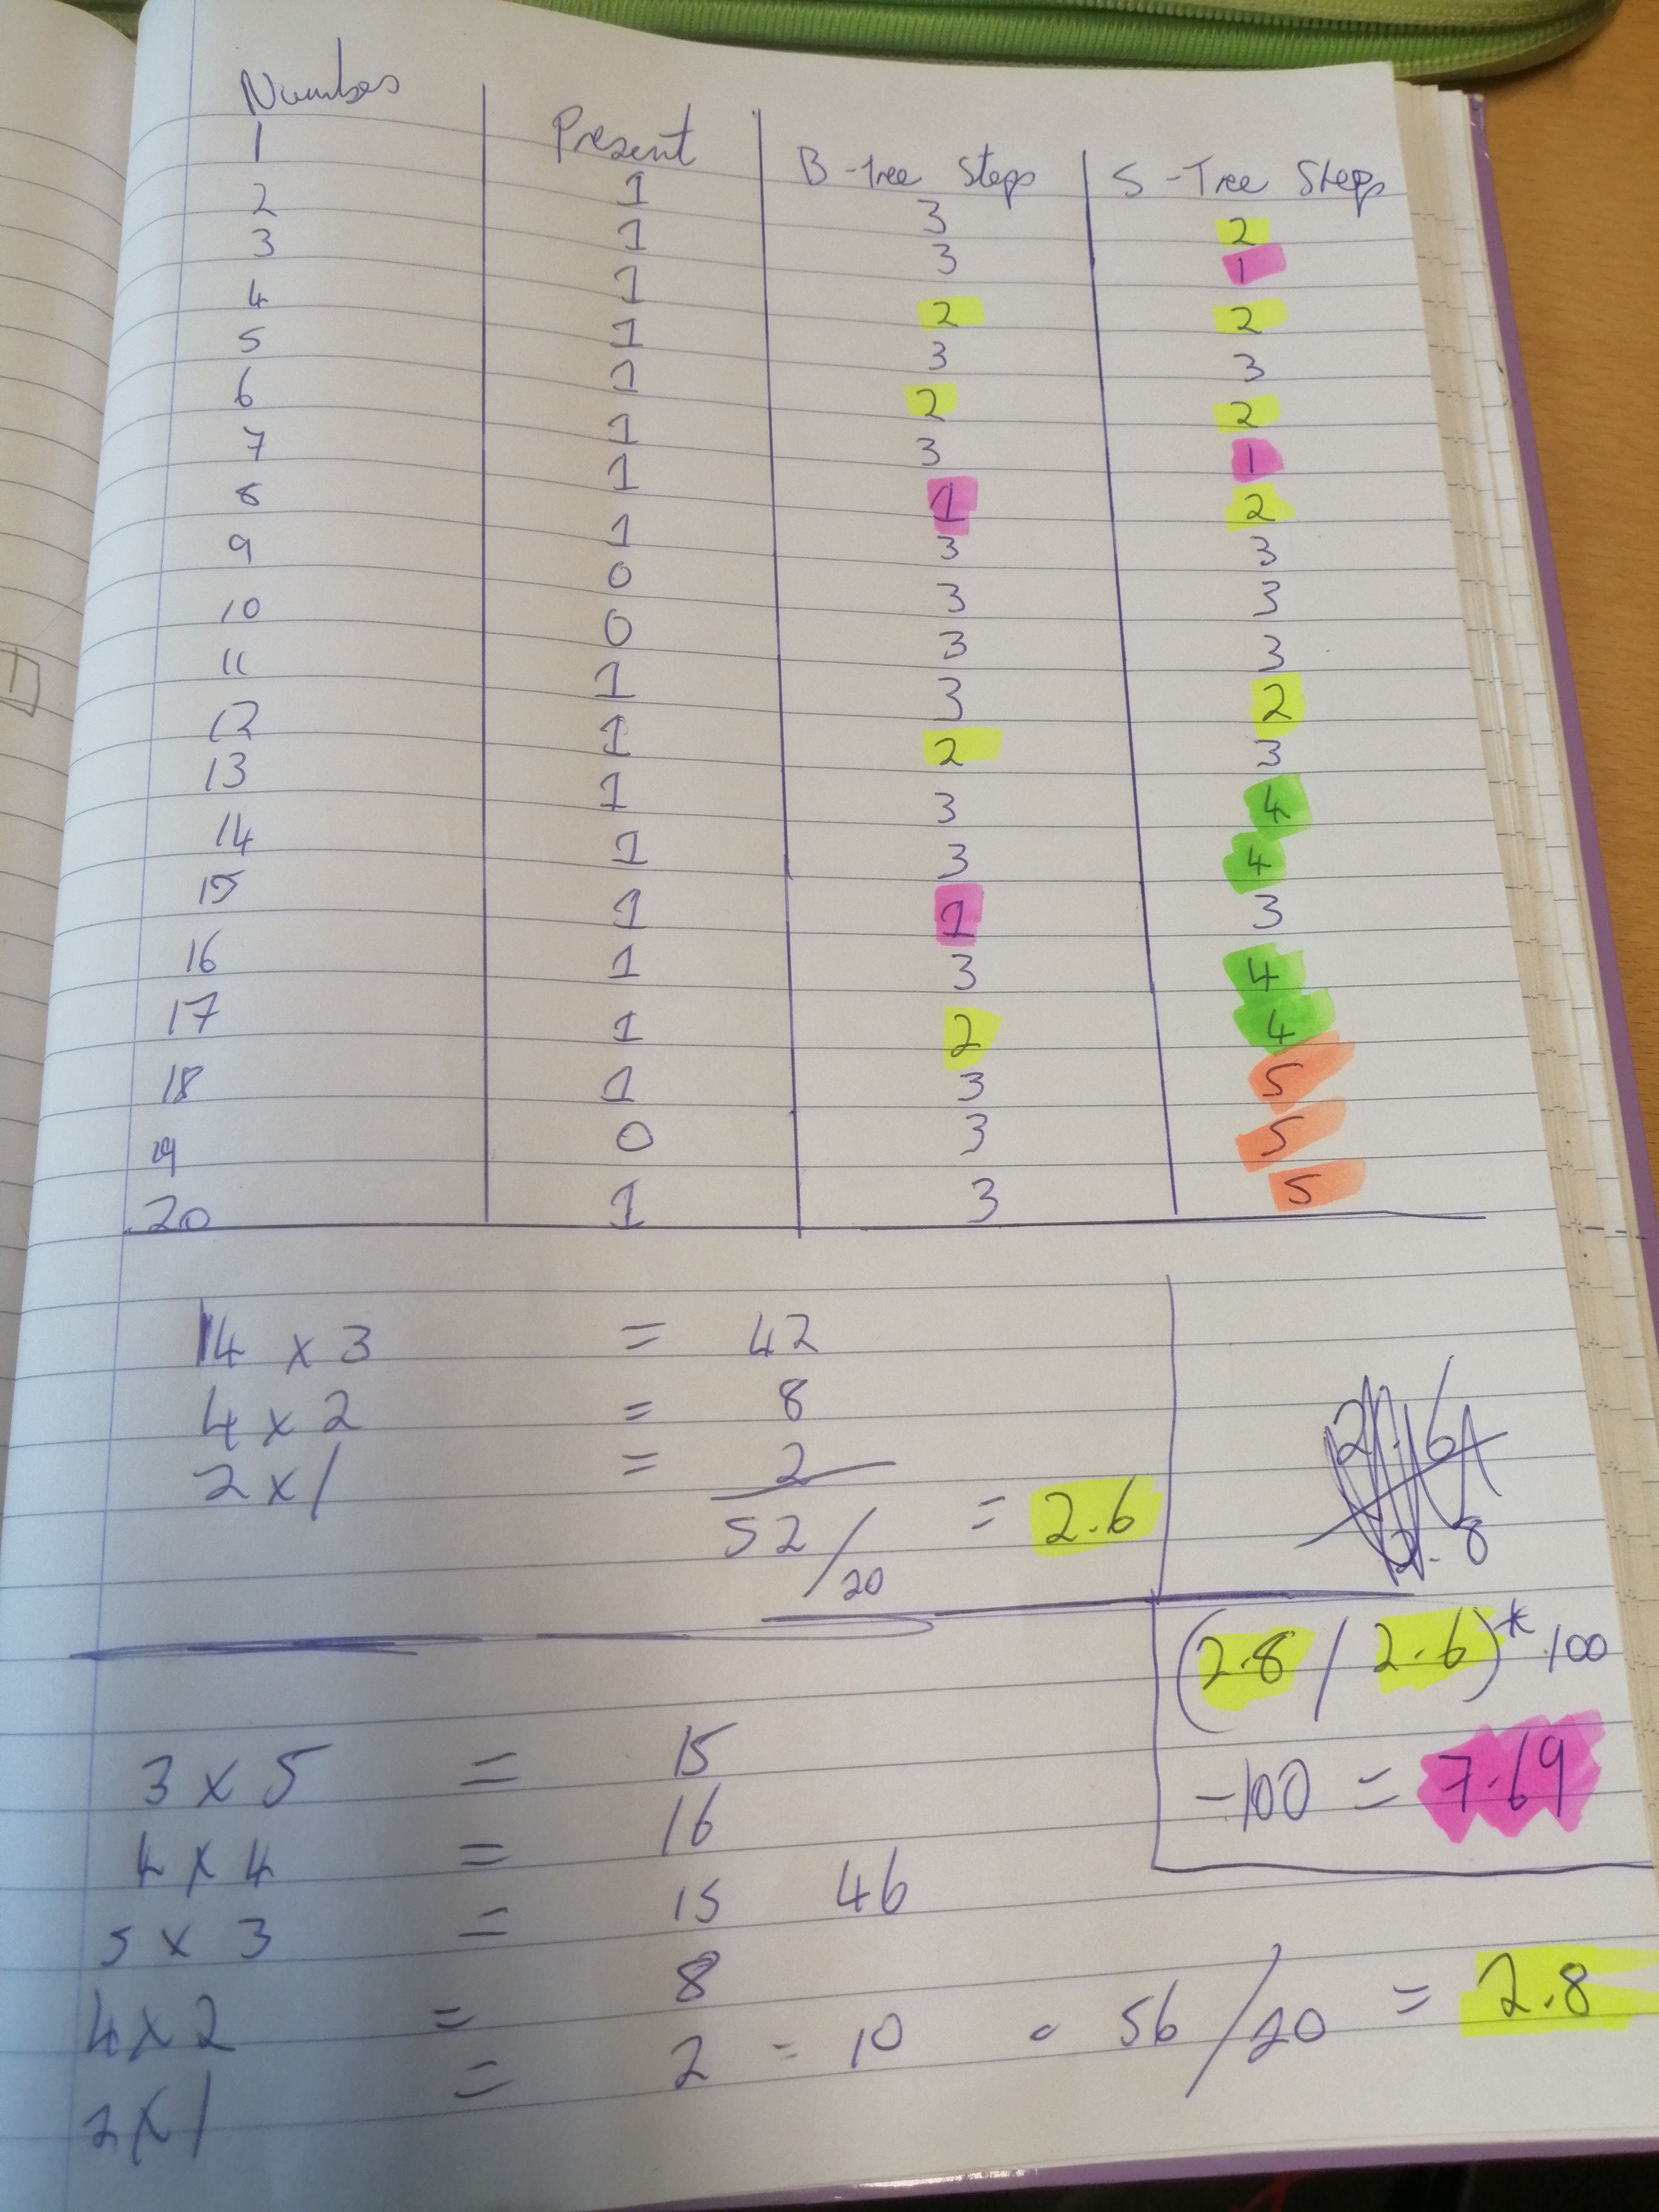 Number Present B-Tree Steps S-Tree Steps
1 1 3 2
2 1 3 1
3 1 2 2
4 1 3 3
5 1 2 2
6 1 3 1
7 1 1 2
8 1 3 3
9 0 3 3
10 0 3 3
11 1 3 2
12 1 2 3
13 1 3 4
14 1 3 4
15 1 1 3
16 1 3 4
17 1 2 4
18 1 3 5
19 0 3 5
20 1 3 5
14 x 3 = 42
4 x 2 = 8
2 x 1 = 2
52/20 = 2.6
(2.8 / 2.6)* 100
-100 = 7.69
3 x 5 = 15
4 x 4 = 16
5 x 3 = 15 46
4 x 2 = 8
2 x 1 = 2 = 10 = 56/20 = 2.8